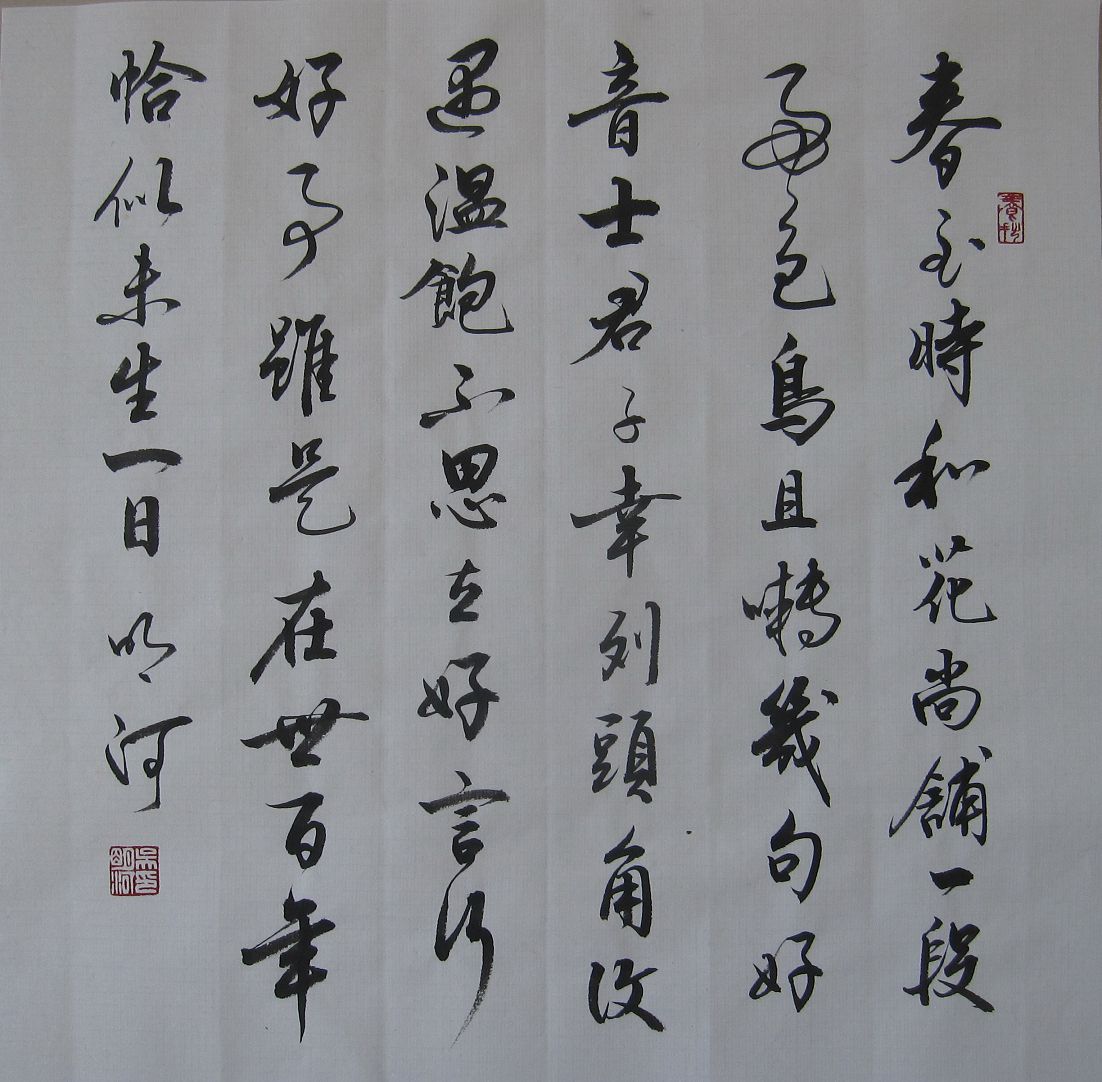 春至時和花尚舖一段
色鳥且囀幾句好
音士君子幸列頭角復
遇溫飽不思立好言行
好事雖是在世百年
恰似未生一日 明河
吳印明河